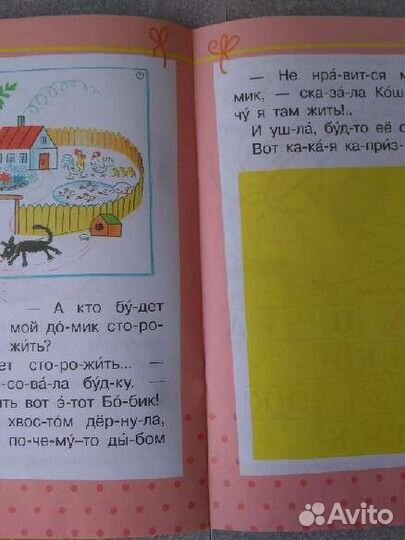 — А кто бу́-дет
мой до́-мик сто-ро-
жи́ть?
ет сто-ро-жи́ть... —
-со-ва́-ла бу́д-ку. —
ить вот э́-тот Бо́-бик!
хвос-то́м дёр-ну́-ла,
по-че-му́-то ды́-бом
— Не нра́-вит-ся м
мик, — ска-за́-ла Ко́ш
чу́ я там жить!..
И уш-ла́, бу́д-то её с
Вот ка-ка́-я ка-при́з-
Avito